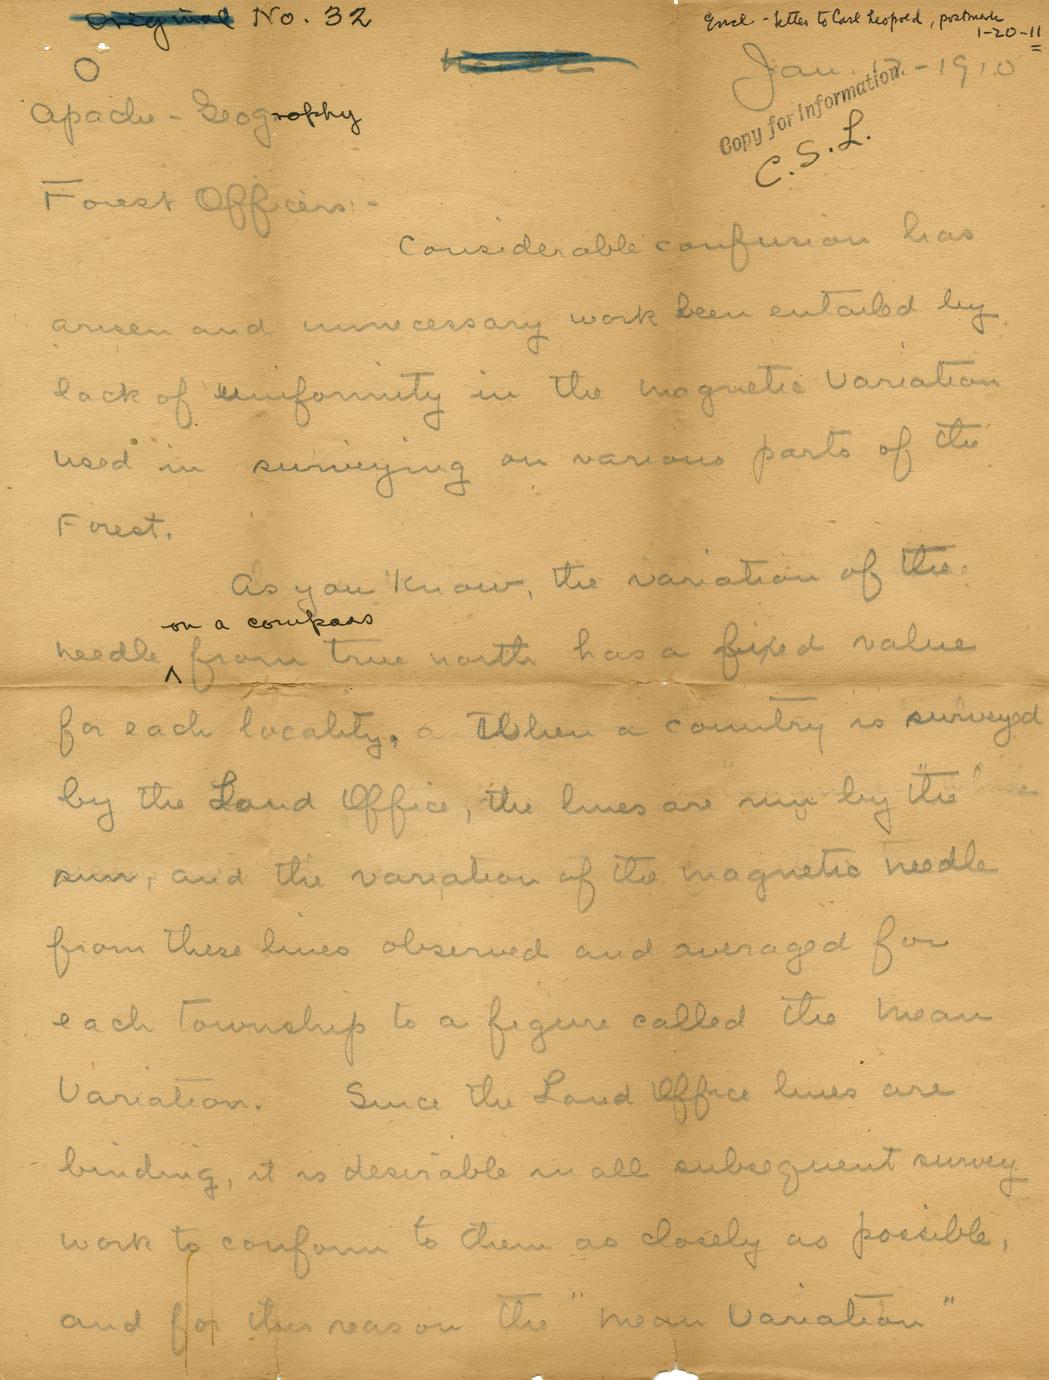 Original No. 32
Encl - letter to Carl Leopold, postmark
1-20-11
No. 32
Jan. 12 - 1910
O
Apache - Geography
Copy for Information.
C. S. L.
Forest Officers: -
Considerable confusion has
arisen and unnecessary work been entailed by
lack of uniformity in the magnetic variation
used in surveying on various parts of the
Forest.
As you know, the variation of the
on a compass
needle ^ from true north has a fixed value
for each locality. When a country is surveyed
by the Land Office, the lines are run by the
sun, and the variation of the magnetic needle
from these lines observed and averaged for
each township to a figure called the Mean
Variation. Since the Land Office lines are
binding, it is desirable in all subsequent survey
work to conform to them as closely as possible,
and for this reason the "Mean Variation"